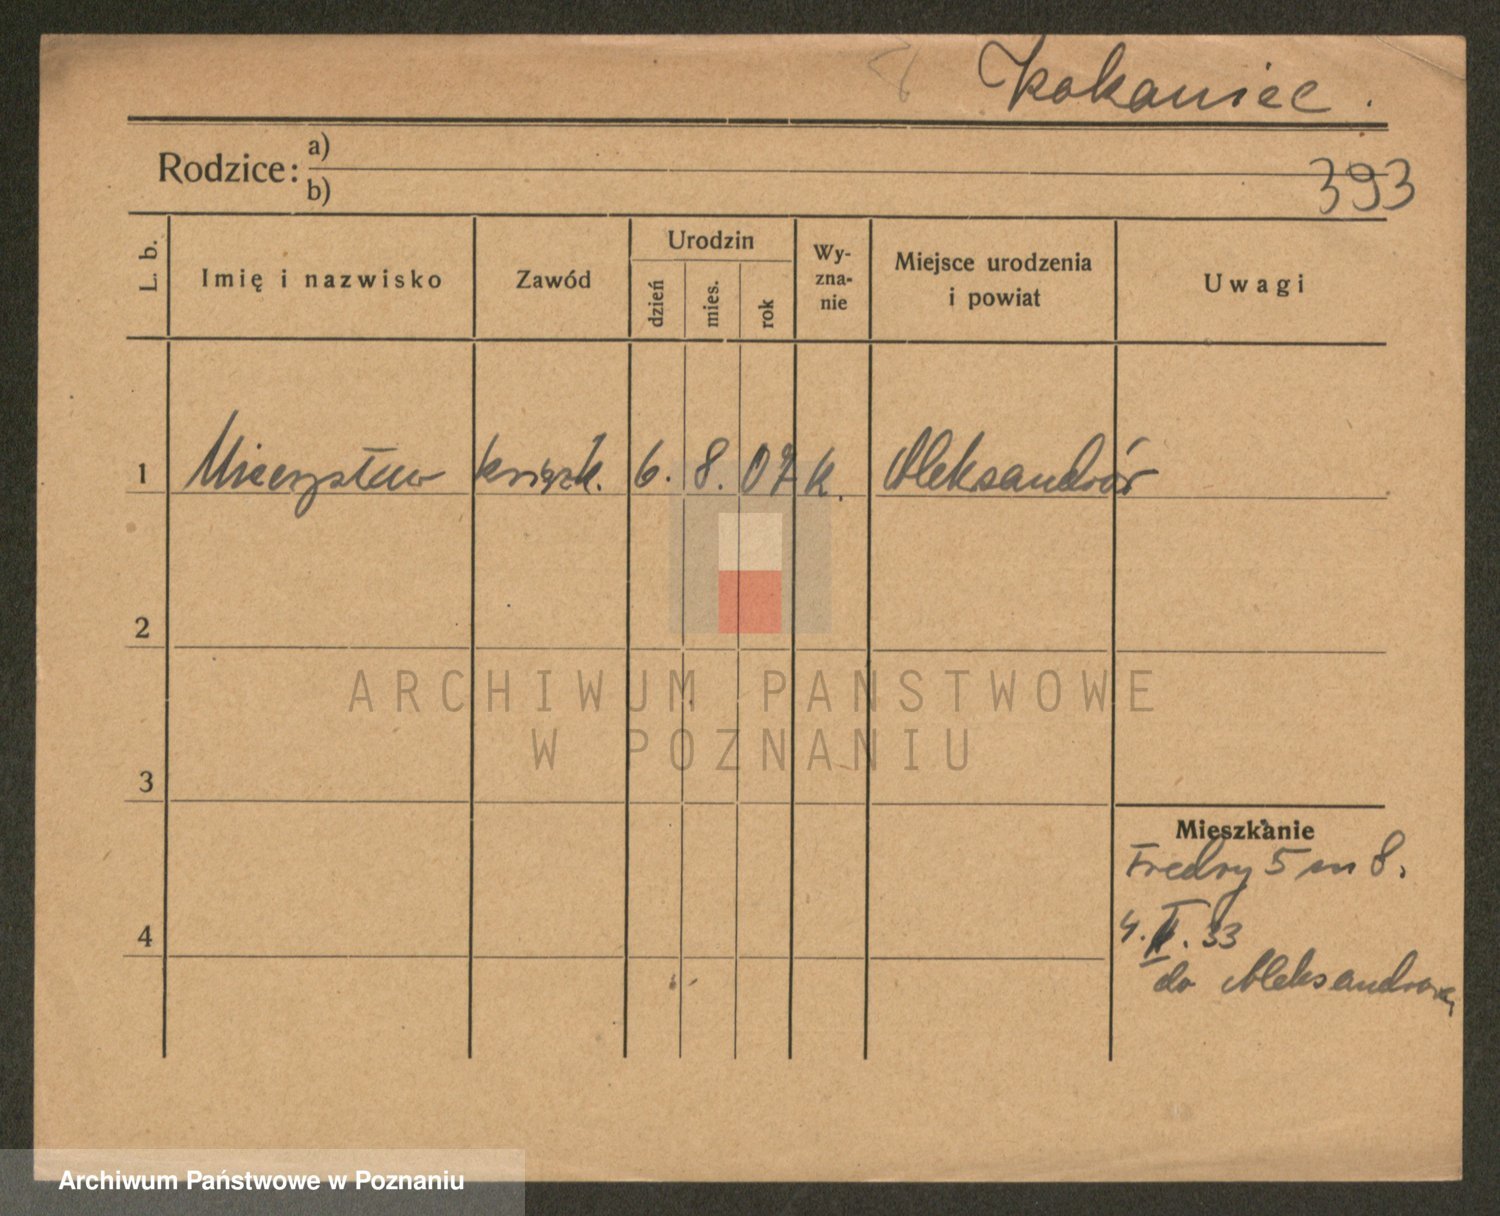 Kokaniec.
Rodzice: a)
b)
393
L. b.
Imię i nazwisko
Zawód
Urodzin
dzień
mies.
rok
Wy-
zna-
nie
Miejsce urodzenia
i powiat
Uwagi
1 Mieczysław książk. 6. 8. 07 k. Aleksandrów
2
ARCHIWUM PAŃSTWOWE
W POZNANIU
3
Mieszkanie
Fredry 5 m 8.
4
4. II. 33
do Aleksandrowa
Archiwum Państwowe w Poznaniu